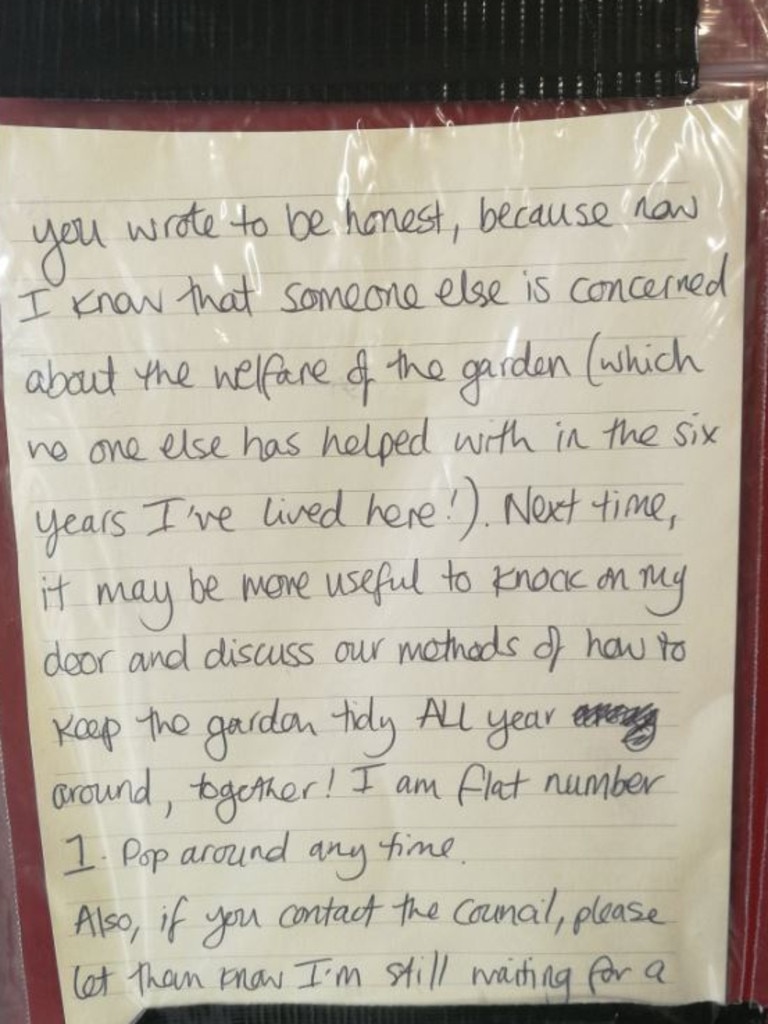 you wrote to be honest, because now
I know that someone else is concerned
about the welfare of the garden (which
no one else has helped with in the six
years I've lived here!). Next time,
it may be more useful to knock on my
door and discuss our methods of how to
keep the garden tidy ALL year
around, together! I am flat number
1. Pop around any time.
Also, if you contact the council, please
let them know I'm still waiting for a